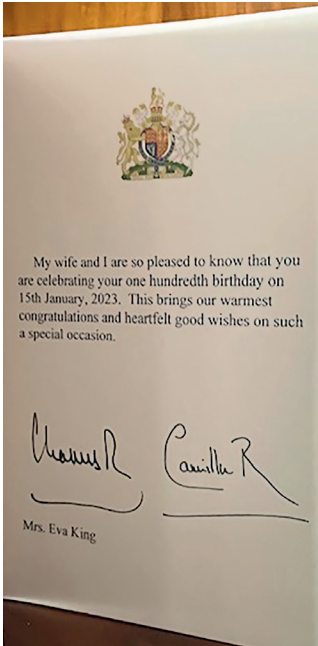 My wife and I are so pleased to know that you
are celebrating your one hundredth birthday on
15th January, 2023. This brings our warmest
congratulations and heartfelt good wishes on such
a special occasion.
Charles R
Camilla R
Mrs. Eva King